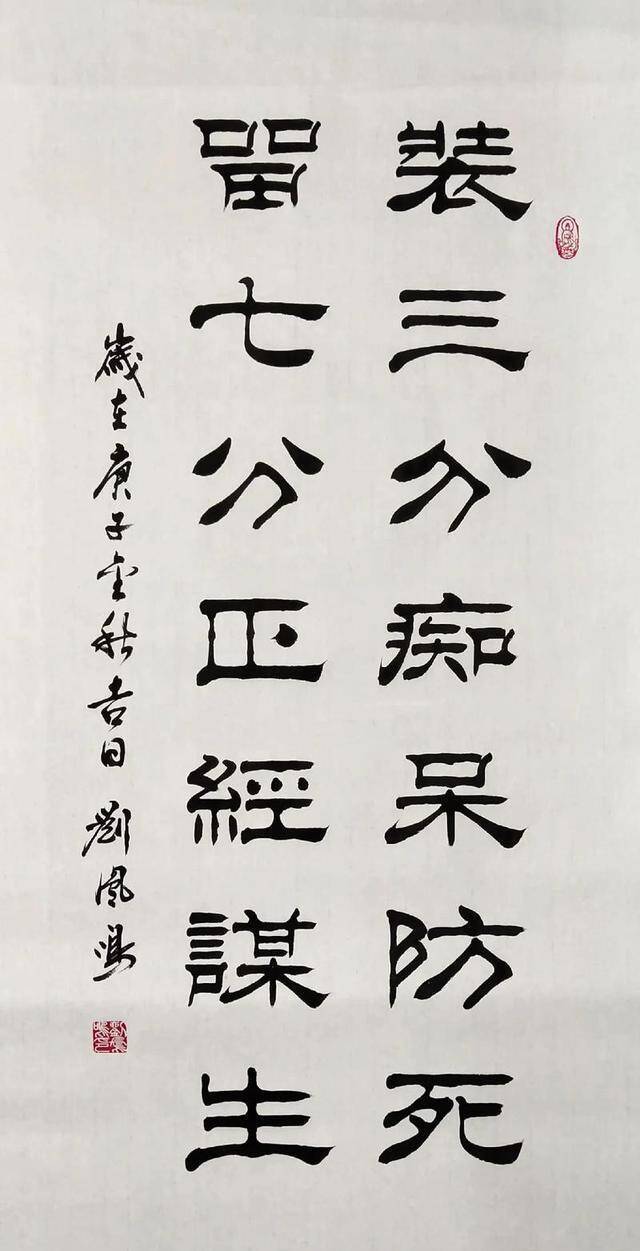 裝三分痴呆防死
畱七分正經謀生
歲在庚子金秋吉日 劉鳳鳴